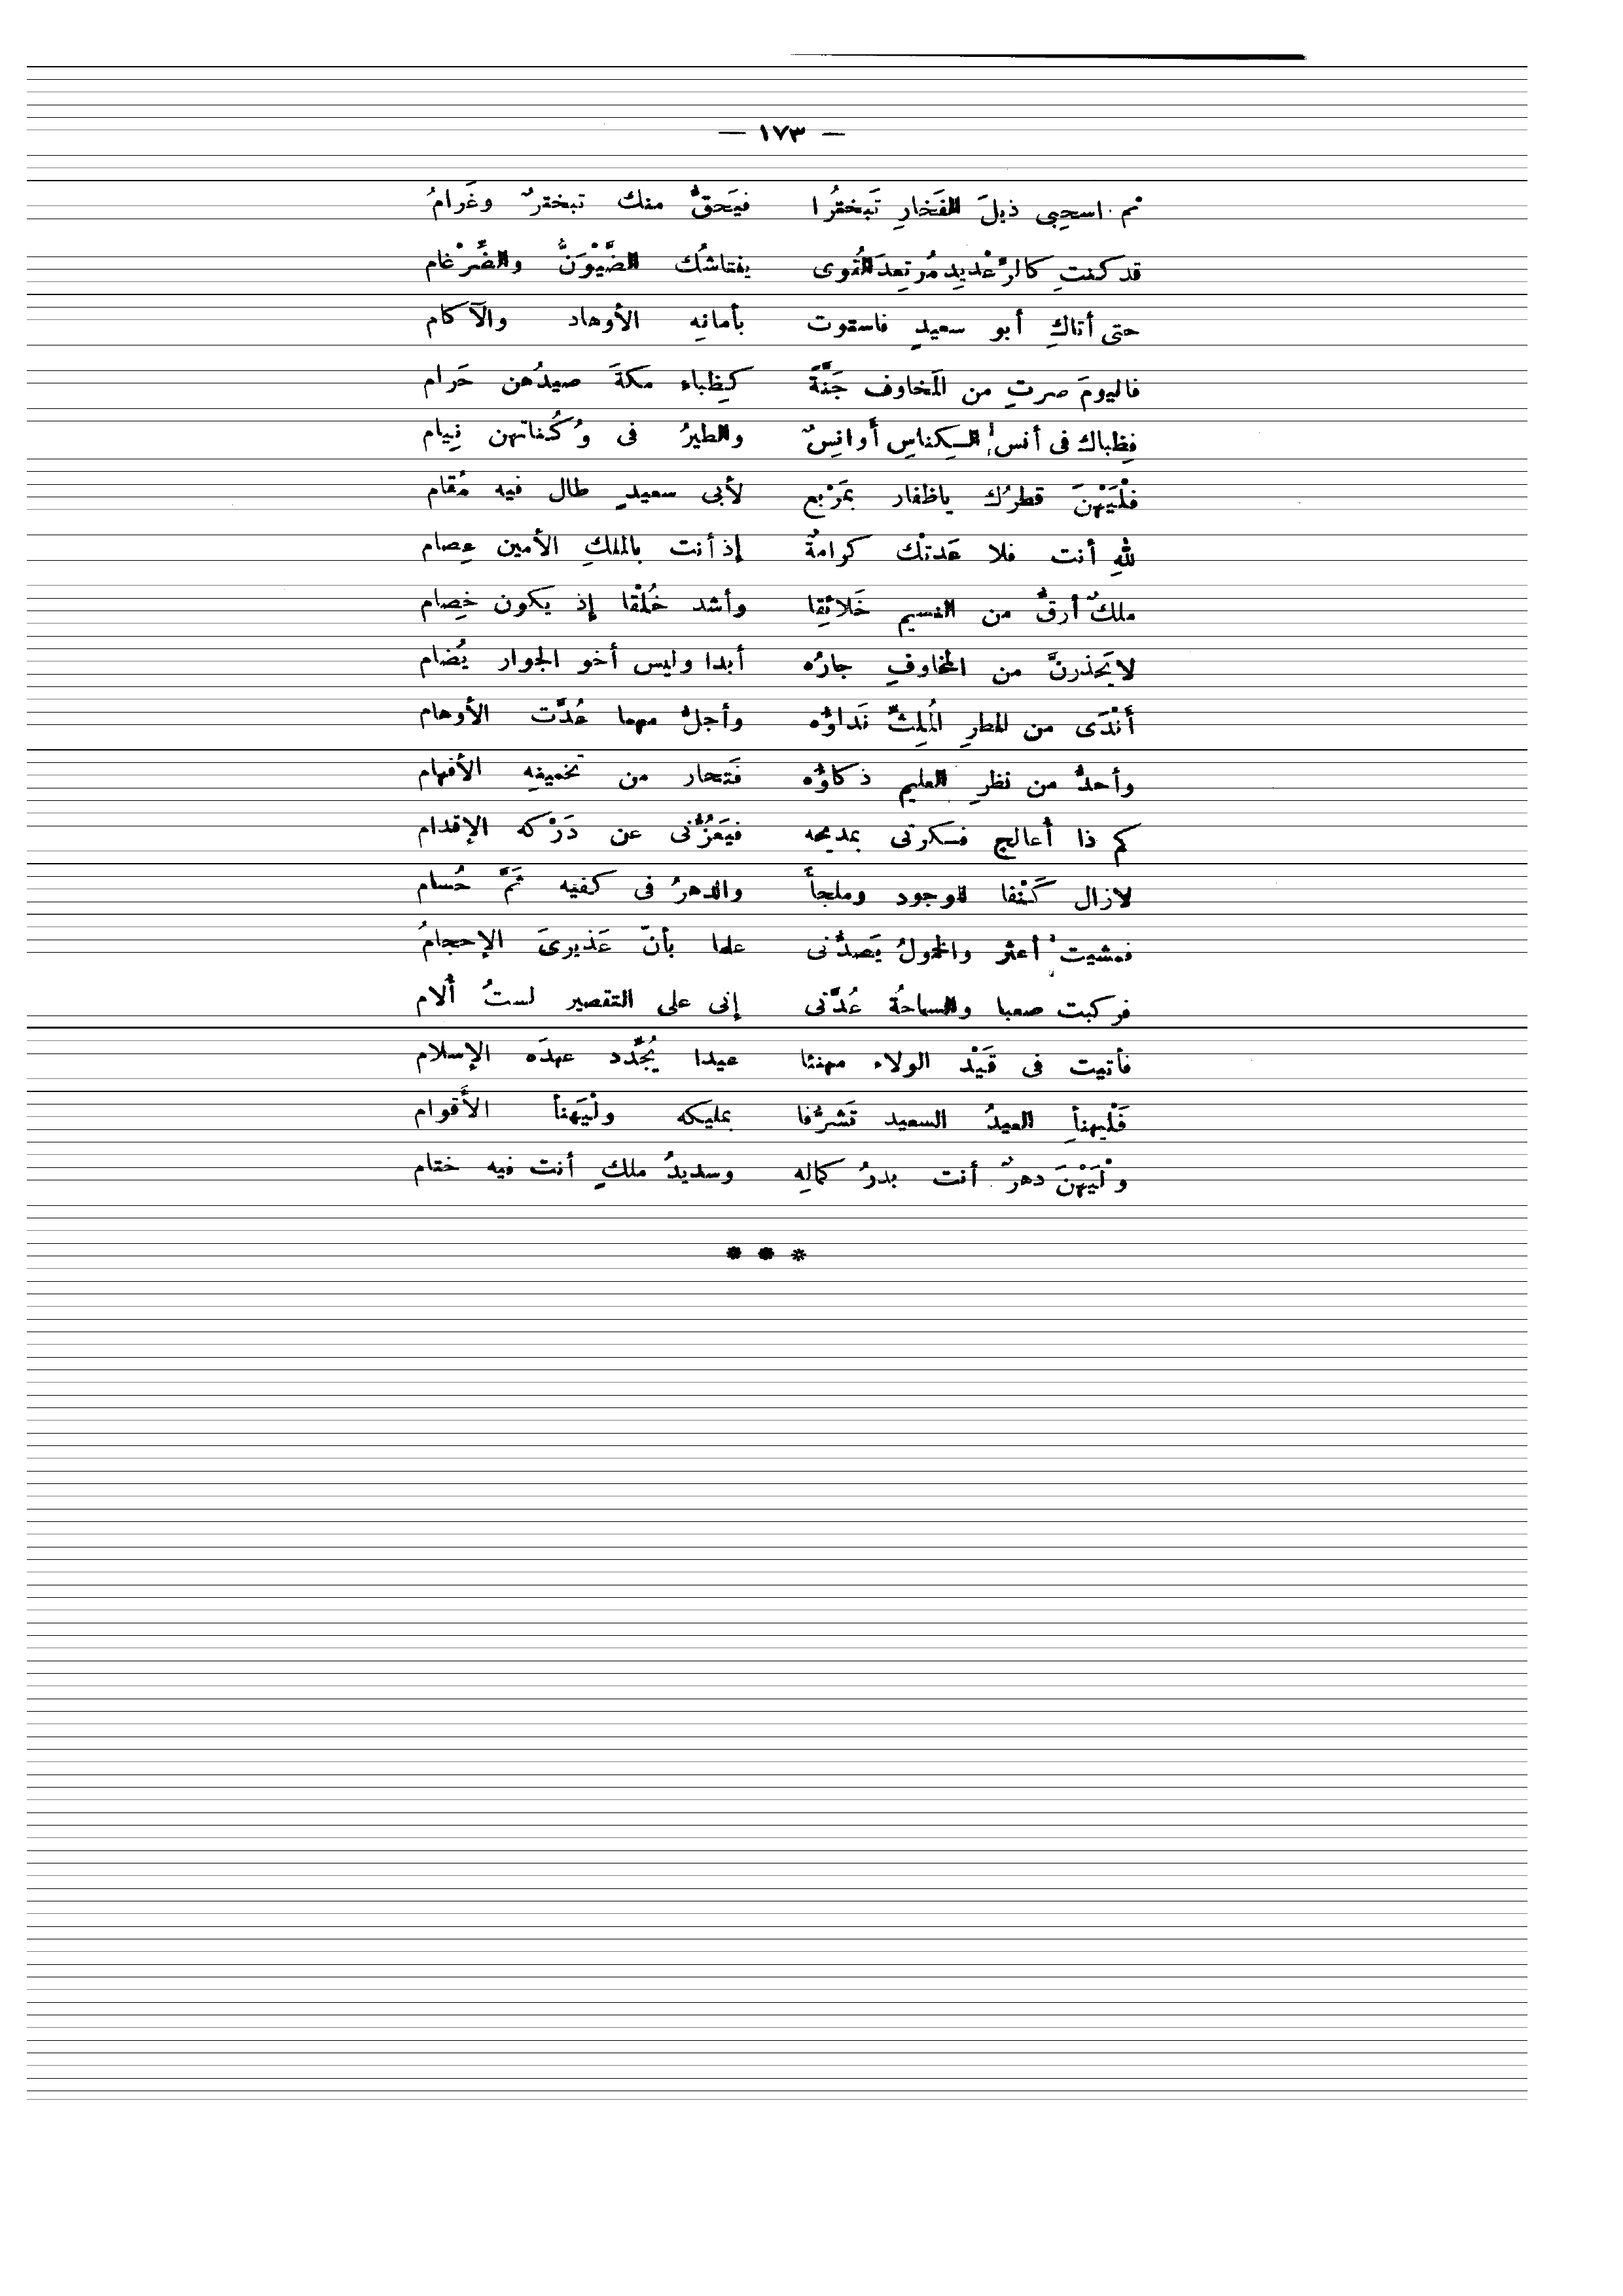 — ١٧٣ —
ثم اسحبى ذيلَ الفَخارِ تَبختُرا فيَحقُّ منك تبخترٌ وغَرامُ
قد كنتِ كالرِّعْديدِ مُرتعِدَ القُوى يغتاشُك الضَّيْوَنُّ والضِّرْغام
حتى أتاكِ أبو سعيدٍ فاستوت بأمانهِ الأوهاد والآكام
فاليومَ صرتِ من المَخاوف جَنَّةً كظِباء مكةَ صيدُهن حَرام
فظِباك فى أنس الكِناسِ أَوانِسٌ والطيرُ فى وُكُناتهن نِيام
فلْيَهْنَ قطرُك ياظفار بمَرْبع لأبى سعيدٍ طال فيه مُقام
للهِ أنت فلا عَدتْك كرامةٌ إذ أنت بالملكِ الأمين عِصام
ملكٌ أرقُّ من النسيم خَلائِقا وأشد خُلْقا إذ يكون خِصام
لا يَحذرنَّ من المخاوفِ جارُه أبدا وليس أخو الجوار يُضام
أَنْدَى من المطرِ المُلِثِّ نَداؤُه وأجلُّ مهما عُدَّت الأوهام
وأحدُّ من نظرِ العليم ذكاؤُه فتَحار من تخمينِه الأفهام
كم ذا أُعالج فسكرتى بمديحه فيَعزُّنى عن دَرْكه الإقدام
لازال كَنْفا للوجود وملجأً والدهرُ فى كفيه ثَمَّ حُسام
فمشيت أعثر والخمولُ يَصدُّنى علما بأنّ عَذيرىَ الإحجامُ
فركبت صعبا والسماحةُ عُدَّتى إنى على التقصير لستُ أُلام
فأتيت فى قَيْد الولاء مهنئا عيدا يُجدِّد عهدَه الإسلام
فَلْيهنأِ العيدُ السعيد تَشرُّفا بمليكه ولْيَهنأ الأَقوام
ولْيَهْنَ دهرٌ أنت بدرُ كمالِه وسديدُ ملكٍ أنت فيه ختام
* * *